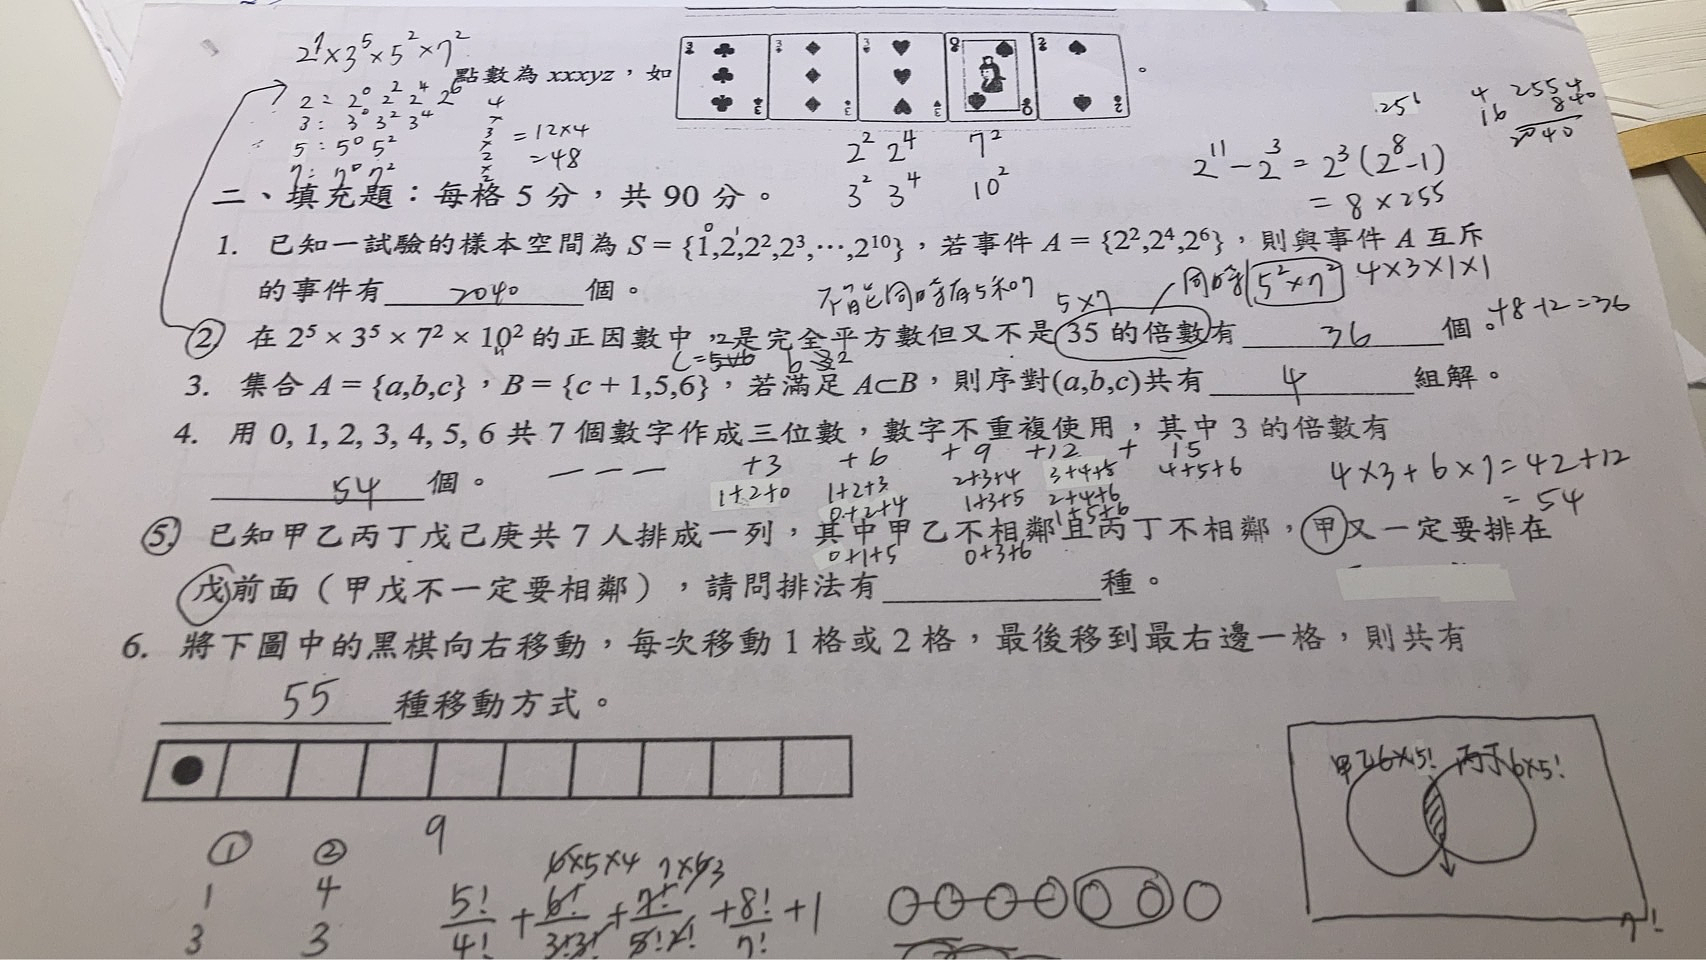 2¹×3⁵×5²×7²
點數為 xxxyz，如
。
2：2⁰ 2² 2⁴ 2⁶
3：3⁰ 3² 3⁴
5：5⁰ 5²
7：7⁰ 7²
4
×
3
×
2
×
2
=12×4
=48
2² 2⁴ 7²
3² 3⁴ 10²
256
2¹¹−2³=2³(2⁸−1)
=8×255
4 255 4
16 840
2040
二、填充題：每格 5 分，共 90 分。
1. 已知一試驗的樣本空間為 S＝{1,2,2²,2³,⋯,2¹⁰}，若事件 A＝{2²,2⁴,2⁶}，則與事件 A 互斥
的事件有 2040 個。
不能同時有5和7
5×7
同時
5²×7²
4×3×1×1
2. 在 2⁵×3⁵×7²×10² 的正因數中，是完全平方數但又不是 35 的倍數有 36 個。
48-12=36
3. 集合 A＝{a,b,c}，B＝{c＋1,5,6}，若滿足 A⊂B，則序對(a,b,c)共有 4 組解。
4. 用 0, 1, 2, 3, 4, 5, 6 共 7 個數字作成三位數，數字不重複使用，其中 3 的倍數有
54 個。
+3 +6 +9 +12 + 15
1+2+0 1+2+3 2+3+4 3+4+5 4+5+6
0+2+4 1+3+5 2+4+6
1+5+6
0+1+5 0+3+6
4×3+6×7=42+12
=54
5. 已知甲乙丙丁戊己庚共 7 人排成一列，其中甲乙不相鄰且丙丁不相鄰，甲又一定要排在
戊前面（甲戊不一定要相鄰），請問排法有 種。
6. 將下圖中的黑棋向右移動，每次移動 1 格或 2 格，最後移到最右邊一格，則共有
55 種移動方式。
9
① ②
1 4
3 3
6×5×4 7×6 3
5!/4! + 6!/3!3! + 7!/5!2! + 8!/7! +1
甲乙6×5! 丙丁6×5!
7!